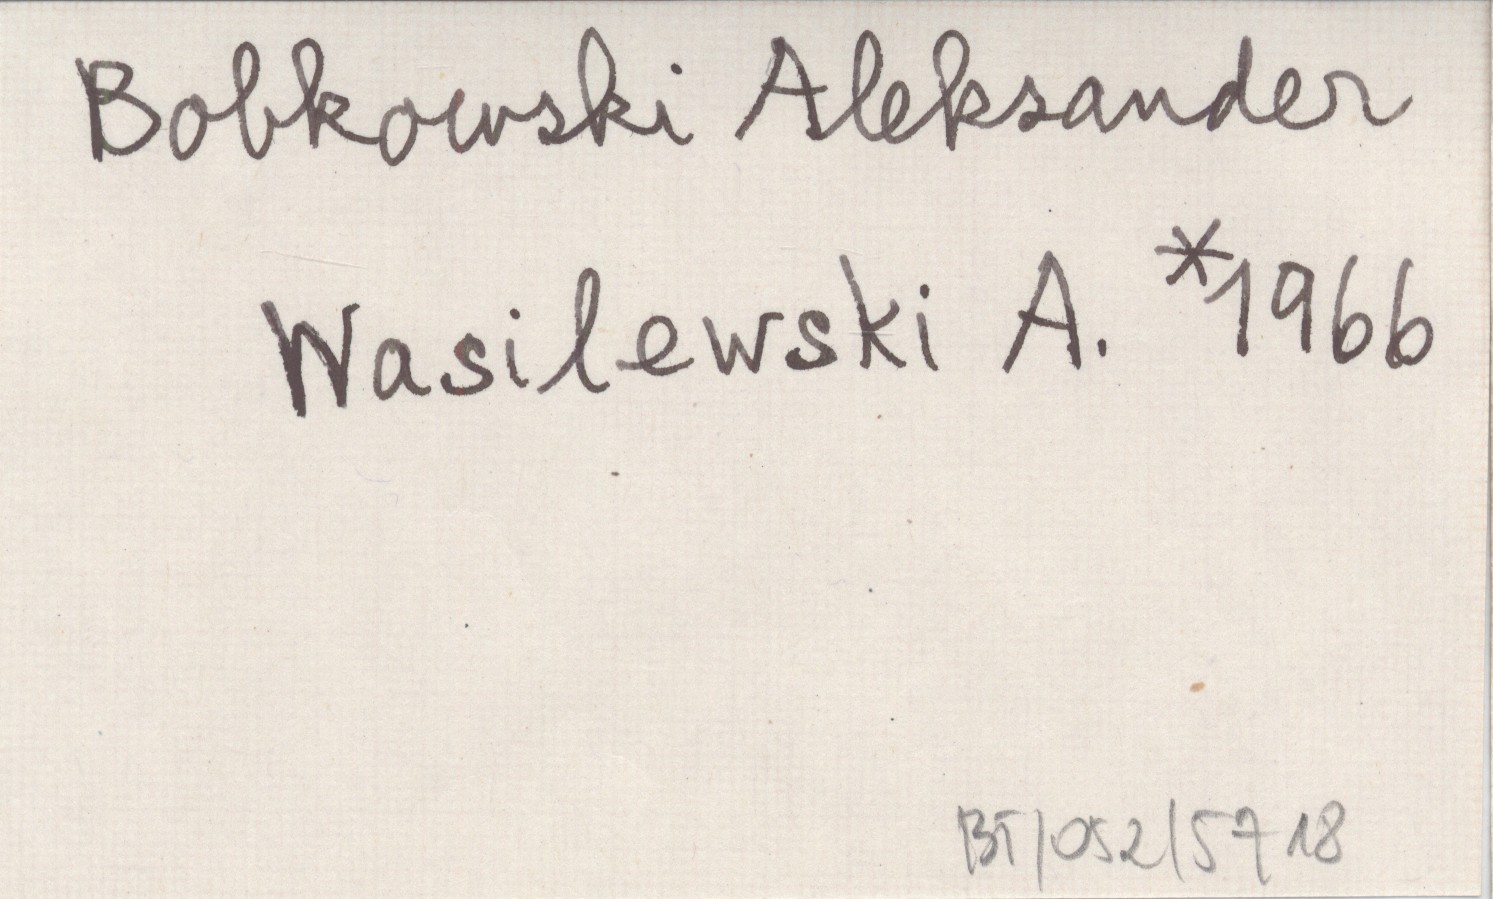 Bobkowski Aleksander
Wasilewski A. *1966
BT/052/5718